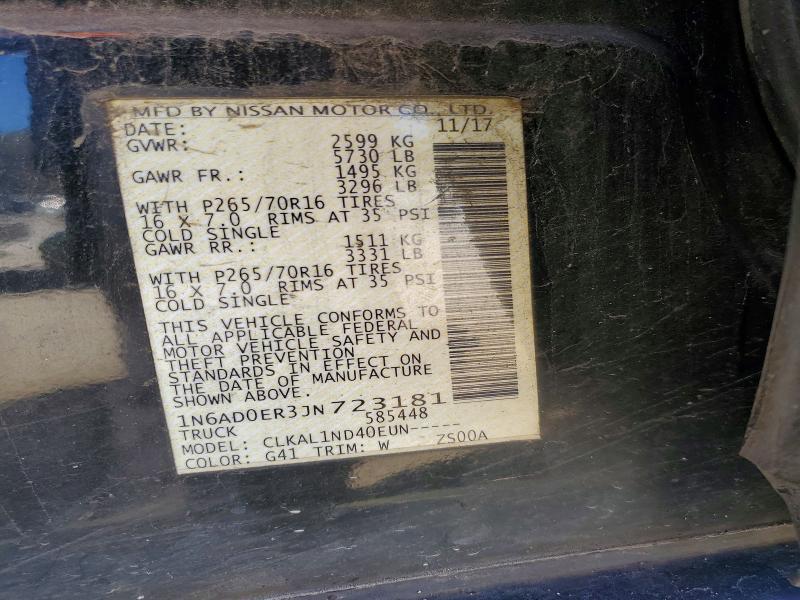 MFD BY NISSAN MOTOR CO., LTD.
DATE: 11/17
GVWR: 2599 KG
5730 LB
GAWR FR.: 1495 KG
3296 LB
WITH P265/70R16 TIRES
16 X 7.0 RIMS AT 35 PSI
COLD SINGLE
GAWR RR.: 1511 KG
3331 LB
WITH P265/70R16 TIRES
16 X 7.0 RIMS AT 35 PSI
COLD SINGLE
THIS VEHICLE CONFORMS TO
ALL APPLICABLE FEDERAL
MOTOR VEHICLE SAFETY AND
THEFT PREVENTION
STANDARDS IN EFFECT ON
THE DATE OF MANUFACTURE
SHOWN ABOVE.
1N6AD0ER3JN723181
585448
TRUCK
MODEL: CLKAL1ND40EUN-----
COLOR: G41 TRIM: W ZS00A